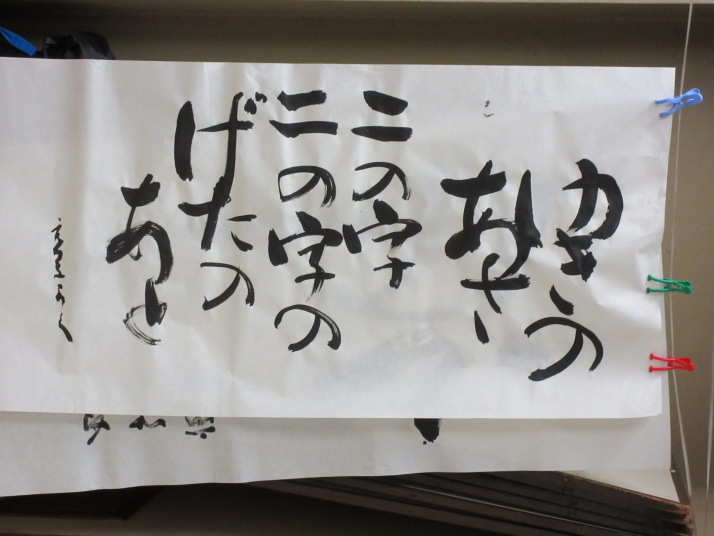 ゆきの
あさ
二の字
二の字の
げたの
あと